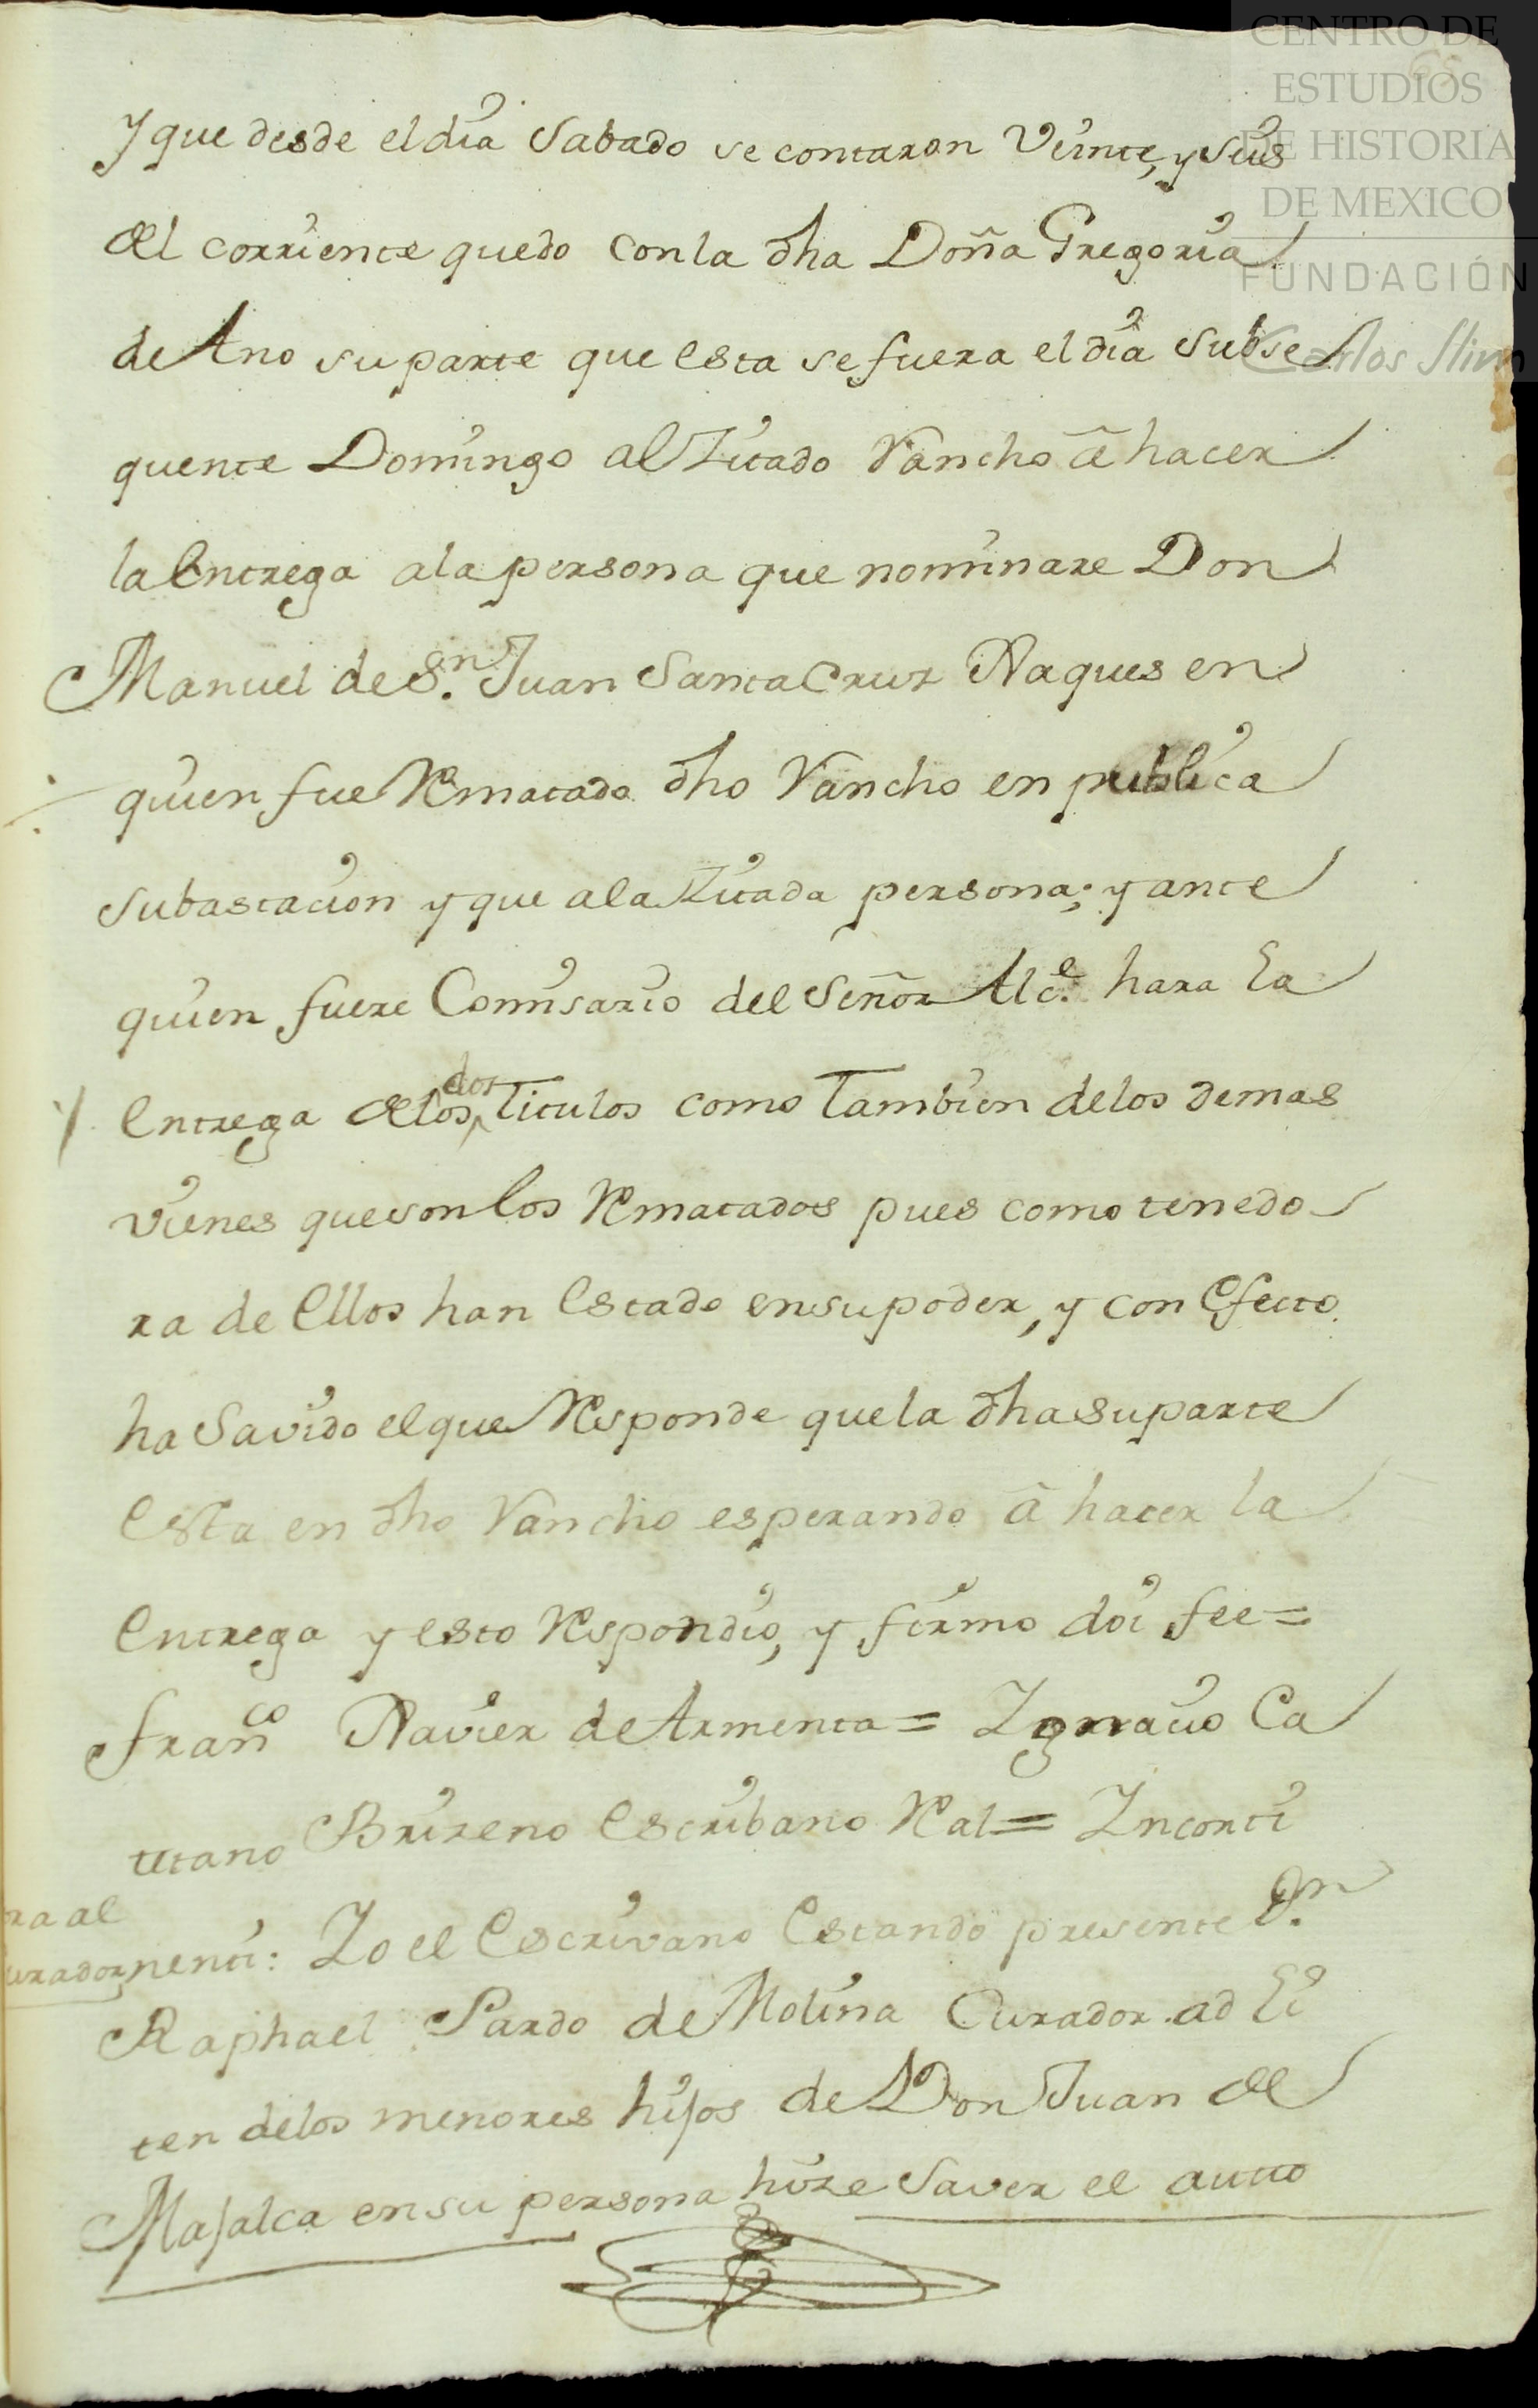 CENTRO DE
ESTUDIOS
DE HISTORIA
DE MEXICO
FUNDACIÓN
Carlos Slim
y que desde el dia Sabado se contaron Veinte, y Seis
del corriente quedo con la dha Doña Gregoria
de Ano su parte que esta se fuera el dia Subse
quente Domingo al Zitado Rancho â hacer
la Entrega ala persona que nominare Don
Manuel de Sn. Juan Santa Cruz Xaques en
quien fue Rematado dho Rancho en publica
Subastacion y que ala Zitada persona; y ante
quien fuere Comisario del Señor Alce. hara la
Entrega delos dos Titulos como Tambien delos demas
vienes que son los Rematados pues como tenedo
ra de Ellos han Estado en su poder, y con Efecto
ha Savido el que Responde que la dha su parte
Esta en dho Rancho esperando â hacer la
Entrega y esto Respondio, y firmo doi fee=
Franco Xavier de Armenta= Ignacio Ca
ietano Brizeno Escribano Real= Inconti
ra al
urador
nenti: Yo el Escrivano Estando presente Dn.
Raphael Pardo de Molina Curador ad Li
ten delos menores hijos de Don Juan de
Majalca en su persona hize Saver el autto